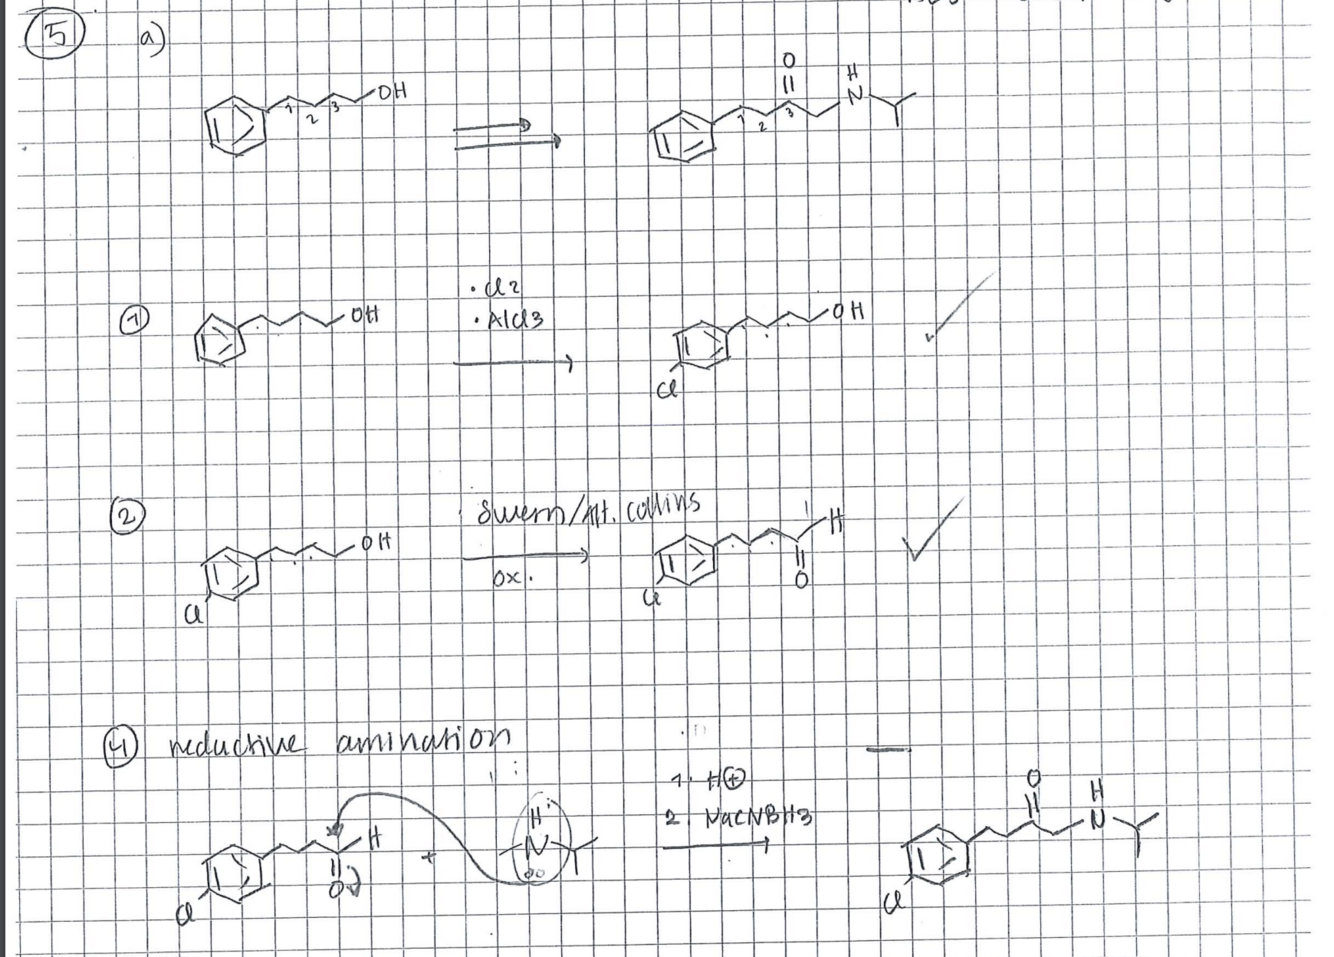 5 a)
OH
1 2 3
O
H
N
1 2 3
1
OH
• Cl2
• AlCl3
OH
Cl
2
OH
Cl
Swern/Alt. collins
ox.
H
O
Cl
4 reductive amination
H
O
Cl
+
H
N
1. H⊕
2. NaCNBH3
O
H
N
Cl